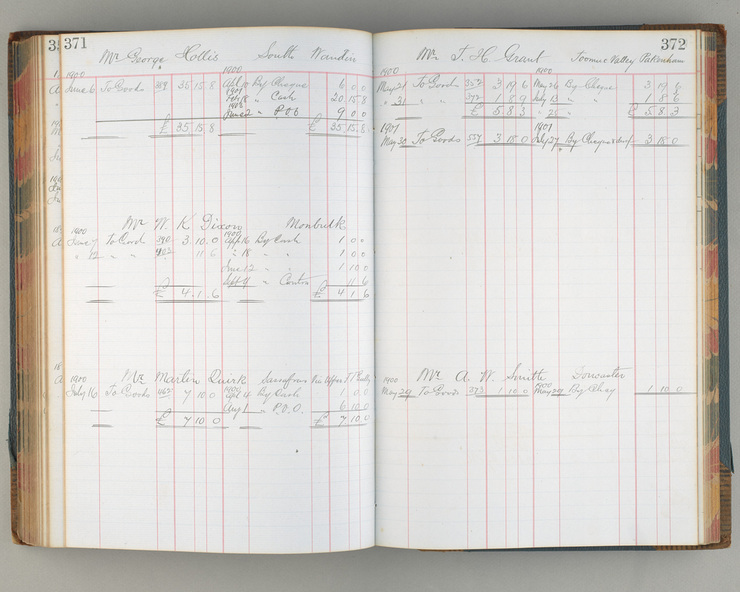 371
Mr George Hollis South Wandin
1900 1900
June 6 To Goods 35 15 8 By Cheque 6 0 0
1901
Feb 18 " Cash 20 15 8
June 2 " P.O.O 9 0 0
£ 35 15 8 £ 35 15 8
Mr W. K Dixon Monbulk
1900 1900
June 7 To Goods 390 3 10 0 Apl 16 By Cash 1 0 0
" 12 " " 11 6 " 18 " " 1 0 0
June 12 " " 1 10 0
Sept 9 " Contra 11 6
£ 4 1 6 £ 4 1 6
Mr Martin Quirk Sassafras
1900 1900
July 16 To Goods 7 10 0 By Cash 1 0 0
Aug 1 " P.O.O. 6 10 0
£ 7 10 0 £ 7 10 0
372
Mr T. H. Grant Toomuc Valley Pakenham
1900 1900
May 21 To Goods 3 19 6 May 26 By Cheque 3 19 6
" 31 " " 1 8 9 July 13 " " 1 8 6
£ 5 8 3 " 25 " £ 5 8 3
1901 1901
May 30 To Goods 557 3 18 0 July 27 By Cheque 3 18 0
Mr A. W. Smith Doncaster
1900 1900
May 29 To Goods 373 1 10 0 May 29 By Cheq 1 10 0